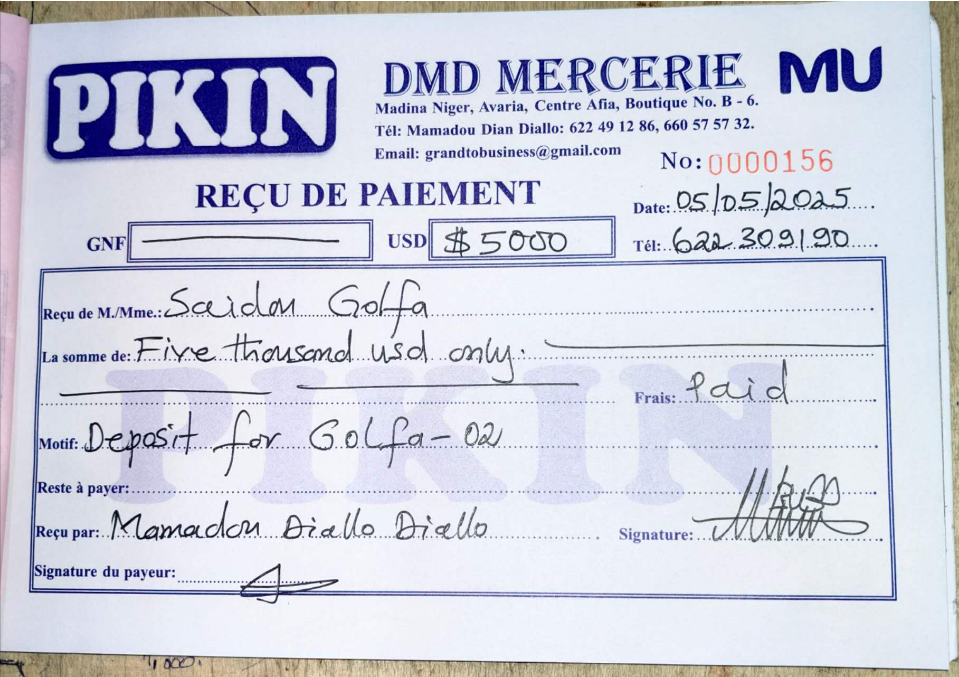 PIKIN
DMD MERCERIE
MU
Madina Niger, Avaria, Centre Afia, Boutique No. B - 6.
Tél: Mamadou Dian Diallo: 622 49 12 86, 660 57 57 32.
Email: grandtobusiness@gmail.com
No: 0000156
REÇU DE PAIEMENT
Date: 05/05/2025
GNF
USD $ 5000
Tél: 622 309190
Reçu de M./Mme.: Saidou Golfa
La somme de: Five thousand usd only.
Frais: Paid
Motif: Deposit for Golfa-02
Reste à payer:
Reçu par: Mamadou Diallo Diallo
Signature:
Signature du payeur:
PIKIN